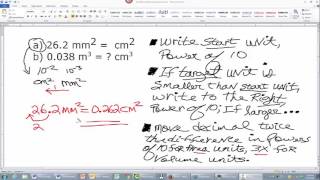 a) 26.2 mm² = cm²
b) 0.038 m³ = ? cm³
10⁻² 10⁻³
cm² mm²
←1
26.2 mm² = 0.262 cm²
2
■ Write start unit,
Power of 10
■ If target unit is
smaller than start unit,
write to the Right
Power of 10; If larger...
■ move decimal twice
the difference in Powers
of 10 for Area units, 3X for
Volume units.